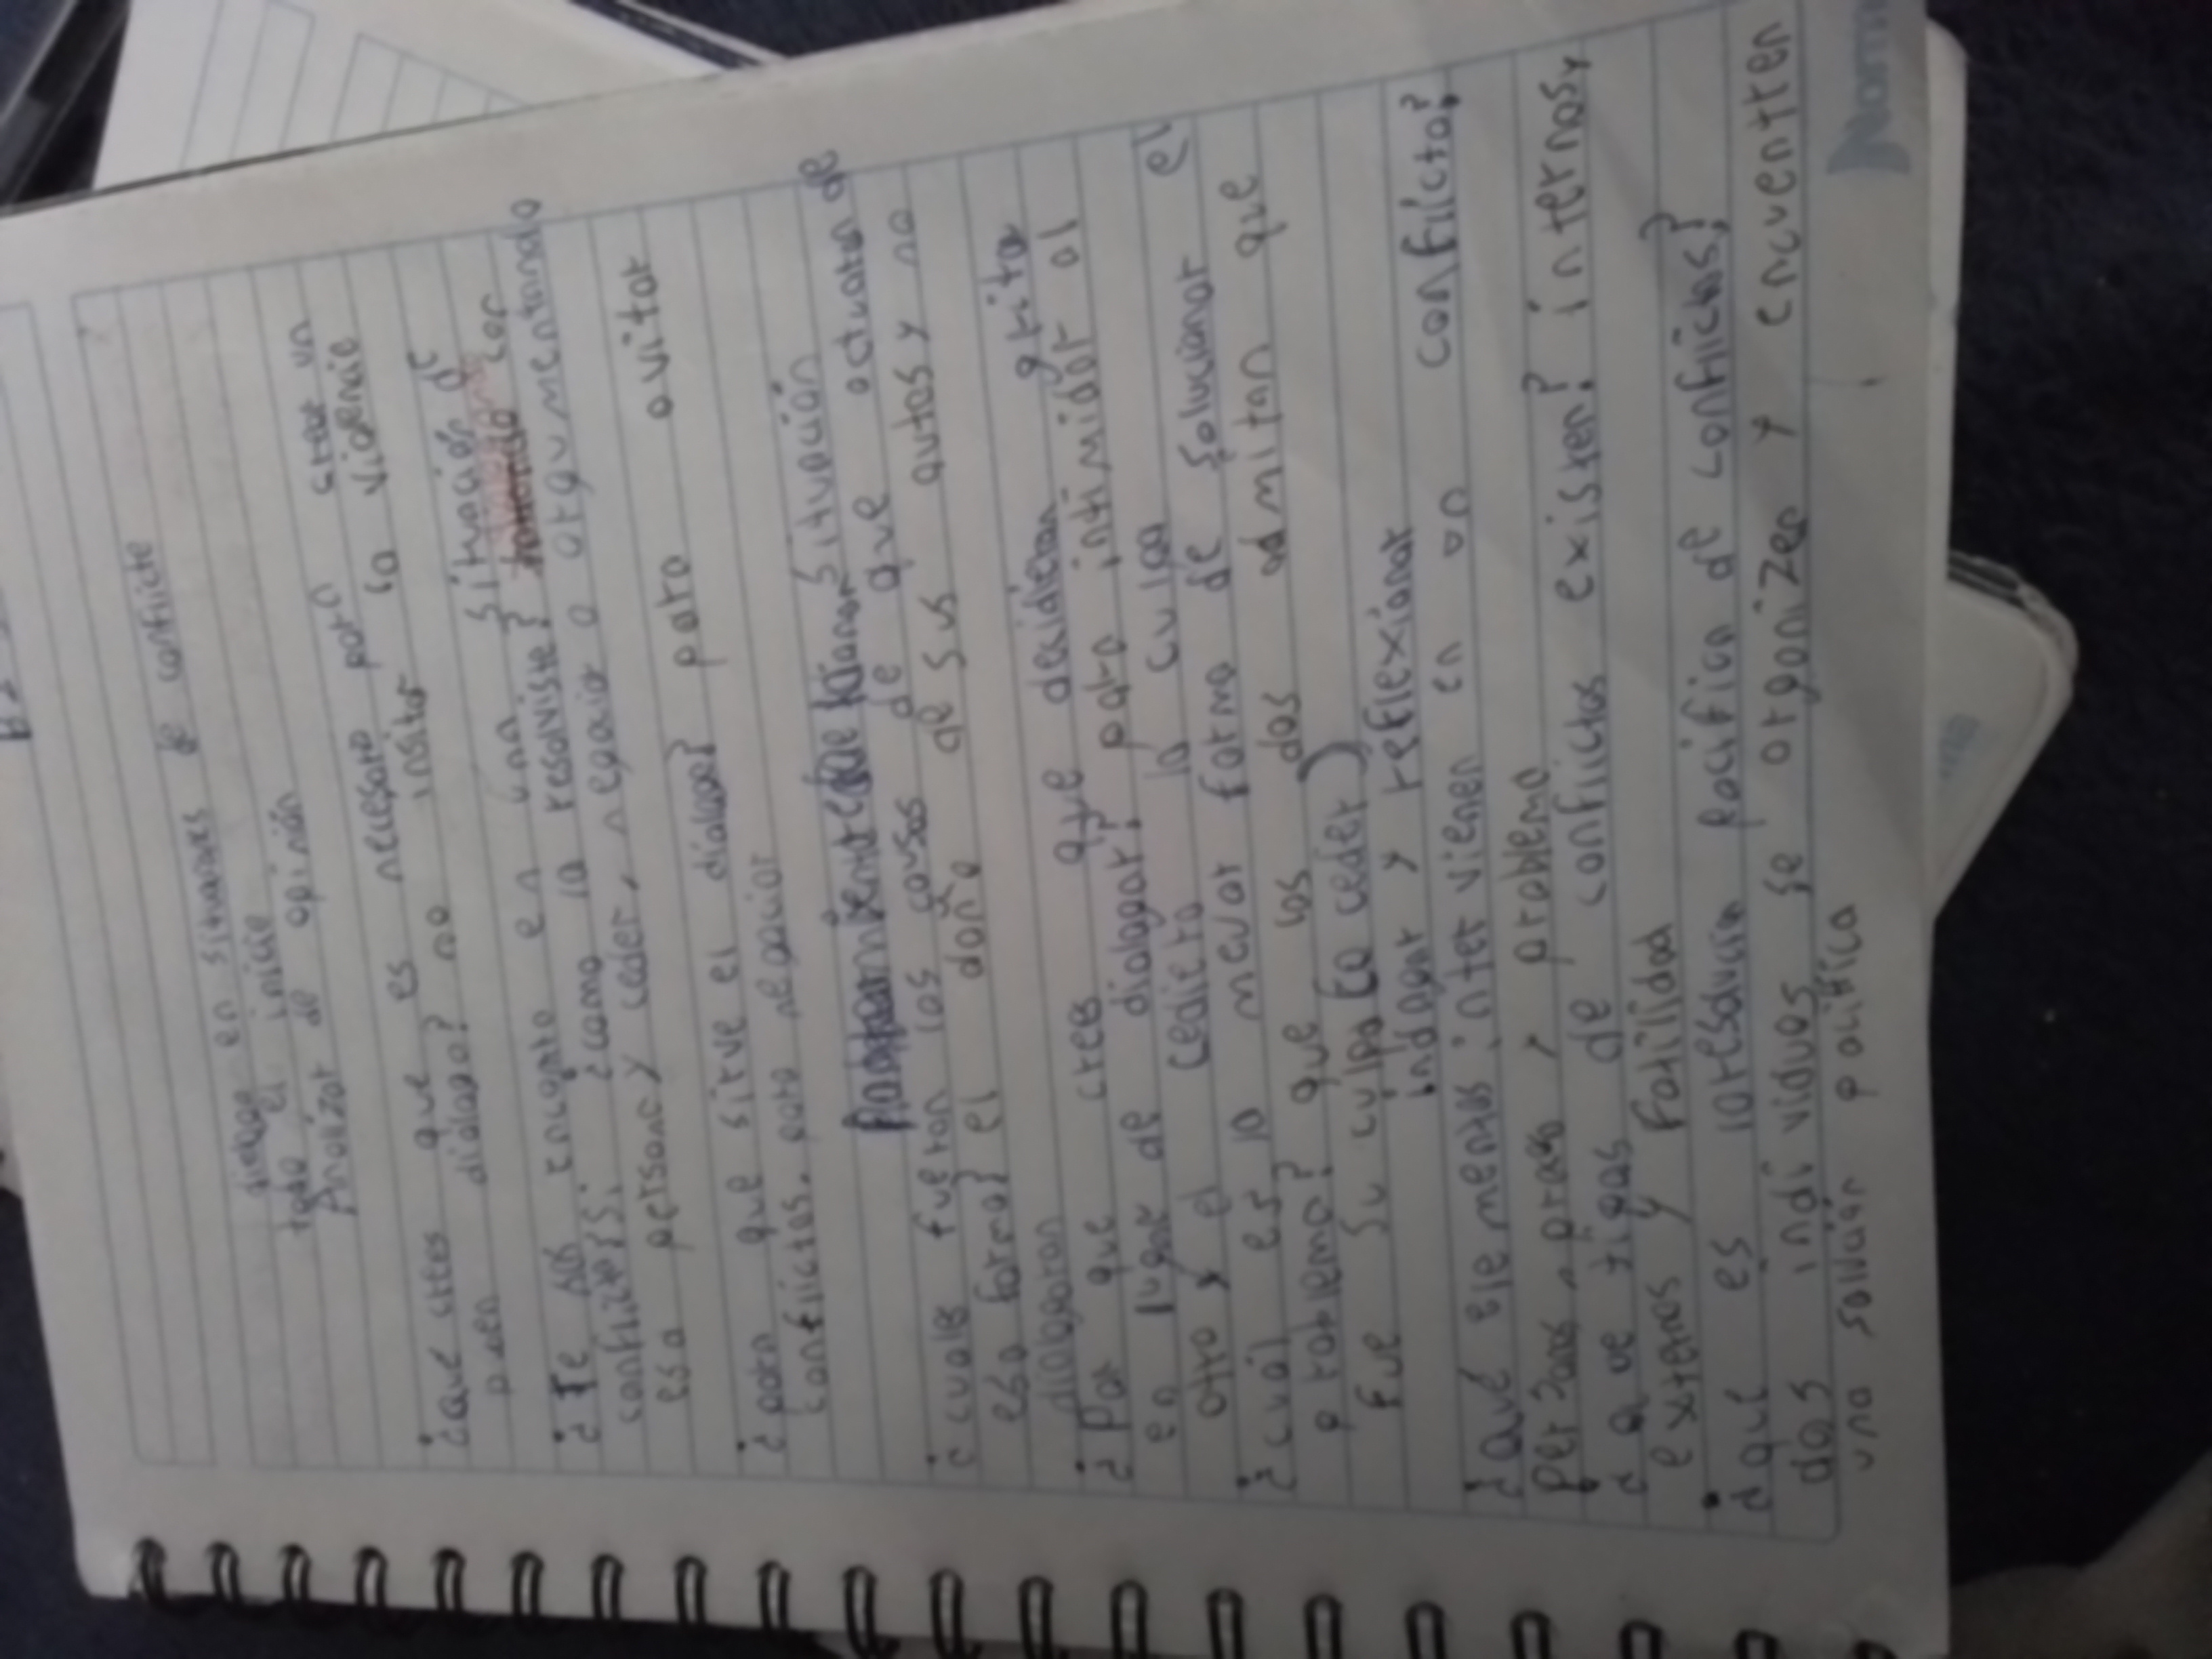 dialogo en situaciones de conflicto
todo el inicie
Analizar de opinión
¿que crees que es necesario para crear un
buen dialogo? no insitar la violencie
¿Te has encontrado en una situación de
conflicto? Si. ¿como la resolviste? con
esa persona y ceder, negocio o argumentando
¿para que sirve el dialogo? para evitar
conflictos, para negociar
Situación
¿cuals fueron las causas de que actuaran de
esa forma? el daño de sus autos y no
dialogaron
¿Por que crees que decidieron gritar
en lugar de dialogar? para intimidar al
otro y el cediera la culpa
¿cuál es la mejor forma de solucionar el
problema? que los dos admitan que
fue su culpa (o ceder)
indagar y reflexionar
¿qué elementos inter vienen en un conflicto?
personas, proaso y problema
¿que tipos de conflictos existen? internos y
externos y Fatilidad
¿qué es la resolución pacifica de conflictos?
das indi viduos se organizee y encuentren
una solución politica
Norm